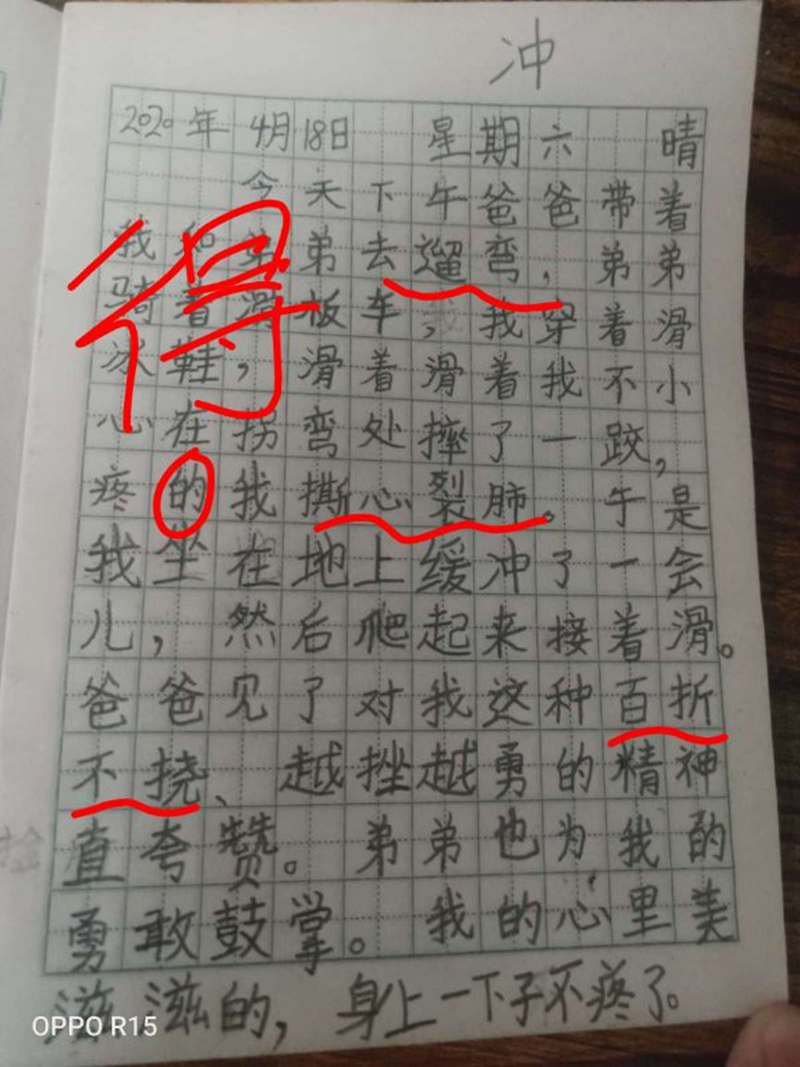 冲
2020年 4月18日 星期六 晴
今天下午爸爸带着
我和弟弟去遛弯，弟弟
骑着滑板车，我穿着滑
冰鞋，滑着滑着我不小
心在拐弯处摔了一跤，
疼的我撕心裂肺。于是
得
我坐在地上缓冲了一会
儿，然后爬起来接着滑。
爸爸见了对我这种百折
不挠、越挫越勇的精神
直夸赞。弟弟也为我的
勇敢鼓掌。我的心里美
滋滋的，身上一下子不疼了。
OPPO R15